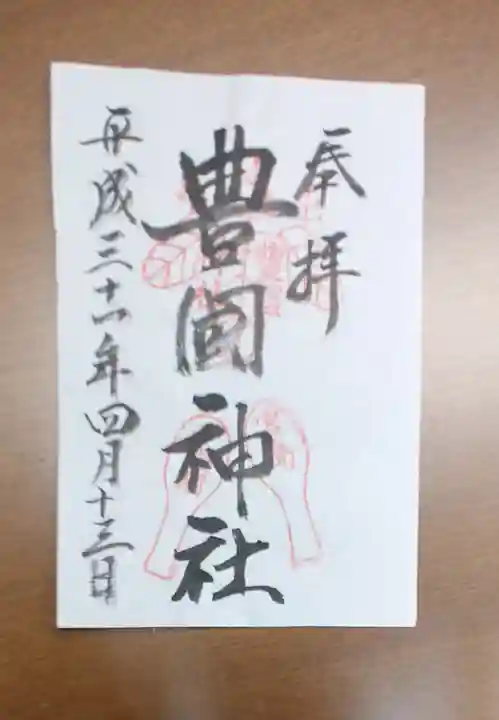 奉拝
豊国神社
平成三十一年四月十三日